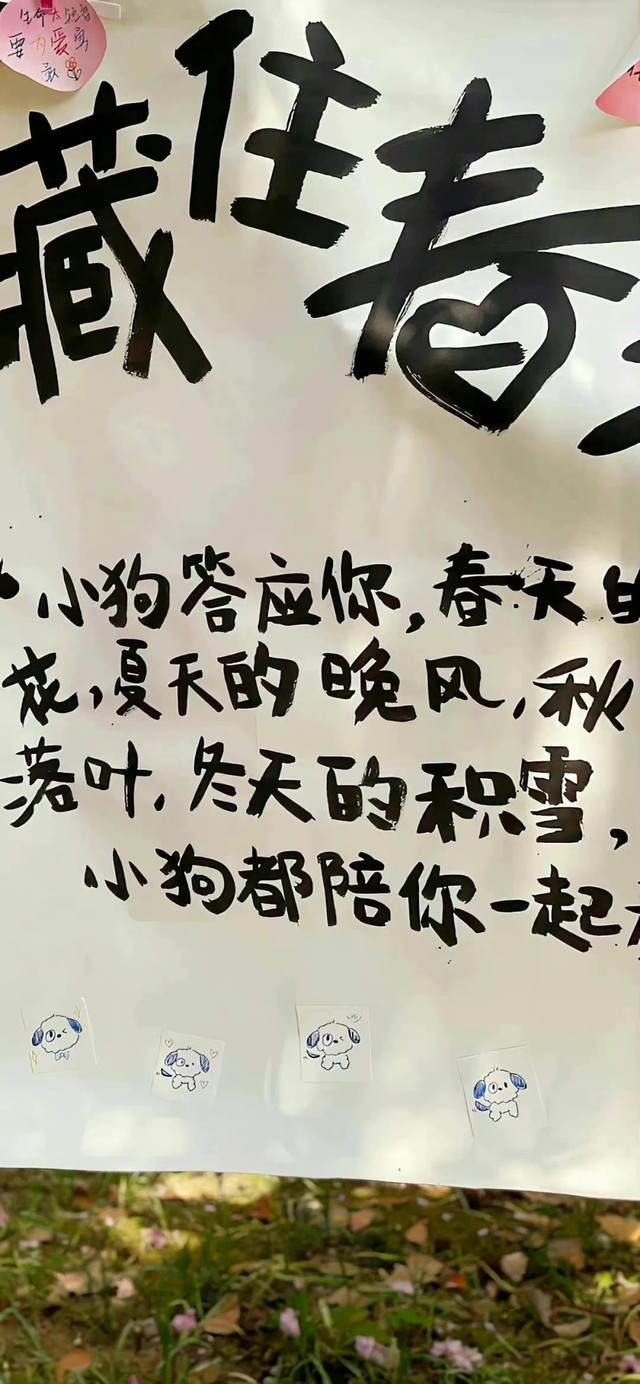 生命太短暂
要为爱写
藏住春
小狗答应你,春天的
花,夏天的晚风,秋
落叶,冬天的积雪,
小狗都陪你一起